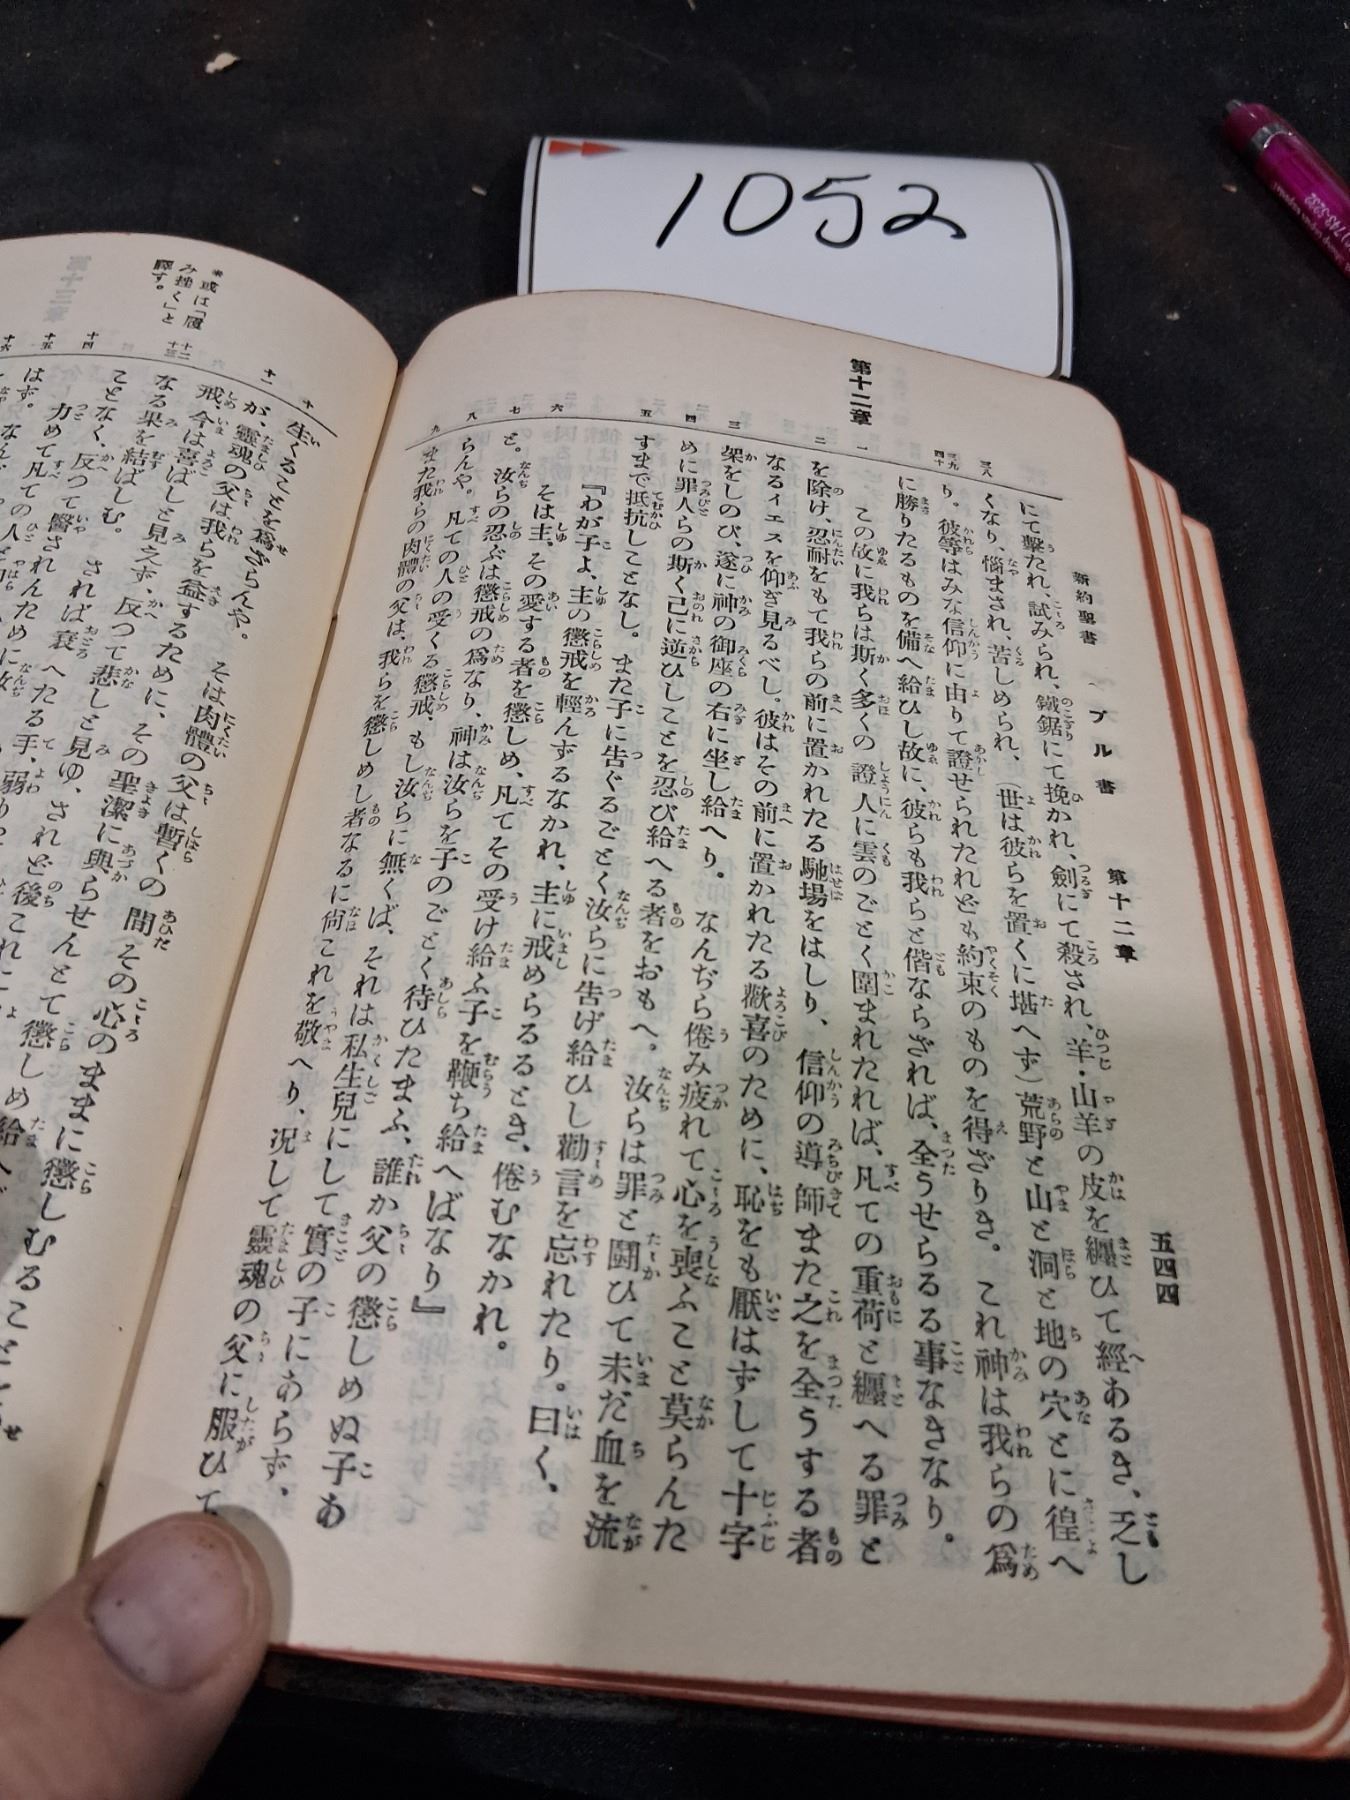 1052
新約聖書 ヘブル書 第十二章 五四四
第十二章
三八
三九
四十
一
二
三
四
五
六
七
八
九
にて擊たれ、試みられ、鐵鋸にて挽かれ、劍にて殺され、羊・山羊の皮を纏ひて經あるき、乏し
くなり、惱まされ、苦しめられ、(世は彼らを置くに堪へず)荒野と山と洞と地の穴とに徨へ
り。彼等はみな信仰に由りて證せられたれども約束のものを得ざりき。これ神は我らの爲
に勝りたるものを備へ給ひし故に、彼らも我らと偕ならざれば、全うせらるる事なきなり。
この故に我らは斯く多くの證人に雲のごとく圍まれたれば、凡ての重荷と纏へる罪と
を除け、忍耐をもて我らの前に置かれたる馳場をはしり、信仰の導師また之を全うする者
なるイエスを仰ぎ見るべし。彼はその前に置かれたる歡喜のために、恥をも厭はずして十字
架をしのび、遂に神の御座の右に坐し給へり。なんぢら倦み疲れて心を喪ふこと莫らんた
めに罪人らの斯く己に逆ひしことを忍び給へる者をおもへ。汝らは罪と鬪ひて未だ血を流
すまで抵抗しことなし。また子に吿ぐるごとく汝らに吿げ給ひし勸言を忘れたり。曰く、
『わが子よ、主の懲戒を輕んずるなかれ、主に戒めらるるとき、倦むなかれ。
そは主、その愛する者を懲しめ、凡てその受け給ふ子を鞭ち給へばなり』
と。汝らの忍ぶは懲戒の爲なり、神は汝らを子のごとく待ひたまふ、誰か父の懲しめぬ子あ
らんや。凡ての人の受くる懲戒、もし汝らに無くば、それは私生兒にして實の子にあらず。
また我らの肉體の父は、我らを懲しめし者なるに尙これを敬へり、況して靈魂の父に服ひて
*或は「履
み挫く」と
譯す。
第十三章
十
十一
十二
十三
十四
十五
十六
生くることを爲ざらんや。そは肉體の父は暫くの間その心のままに懲しむること
が、靈魂の父は我らを益するために、その聖潔に與らせんとて懲しめ給へば
戒、今は喜ばしと見えず、反つて悲しと見ゆ、されど後これに
なる果を結ばしむ。されば衰へたる手、弱り
ことなく、反つて醫されんために汝
力めて凡ての人と和
はず。なんぢ